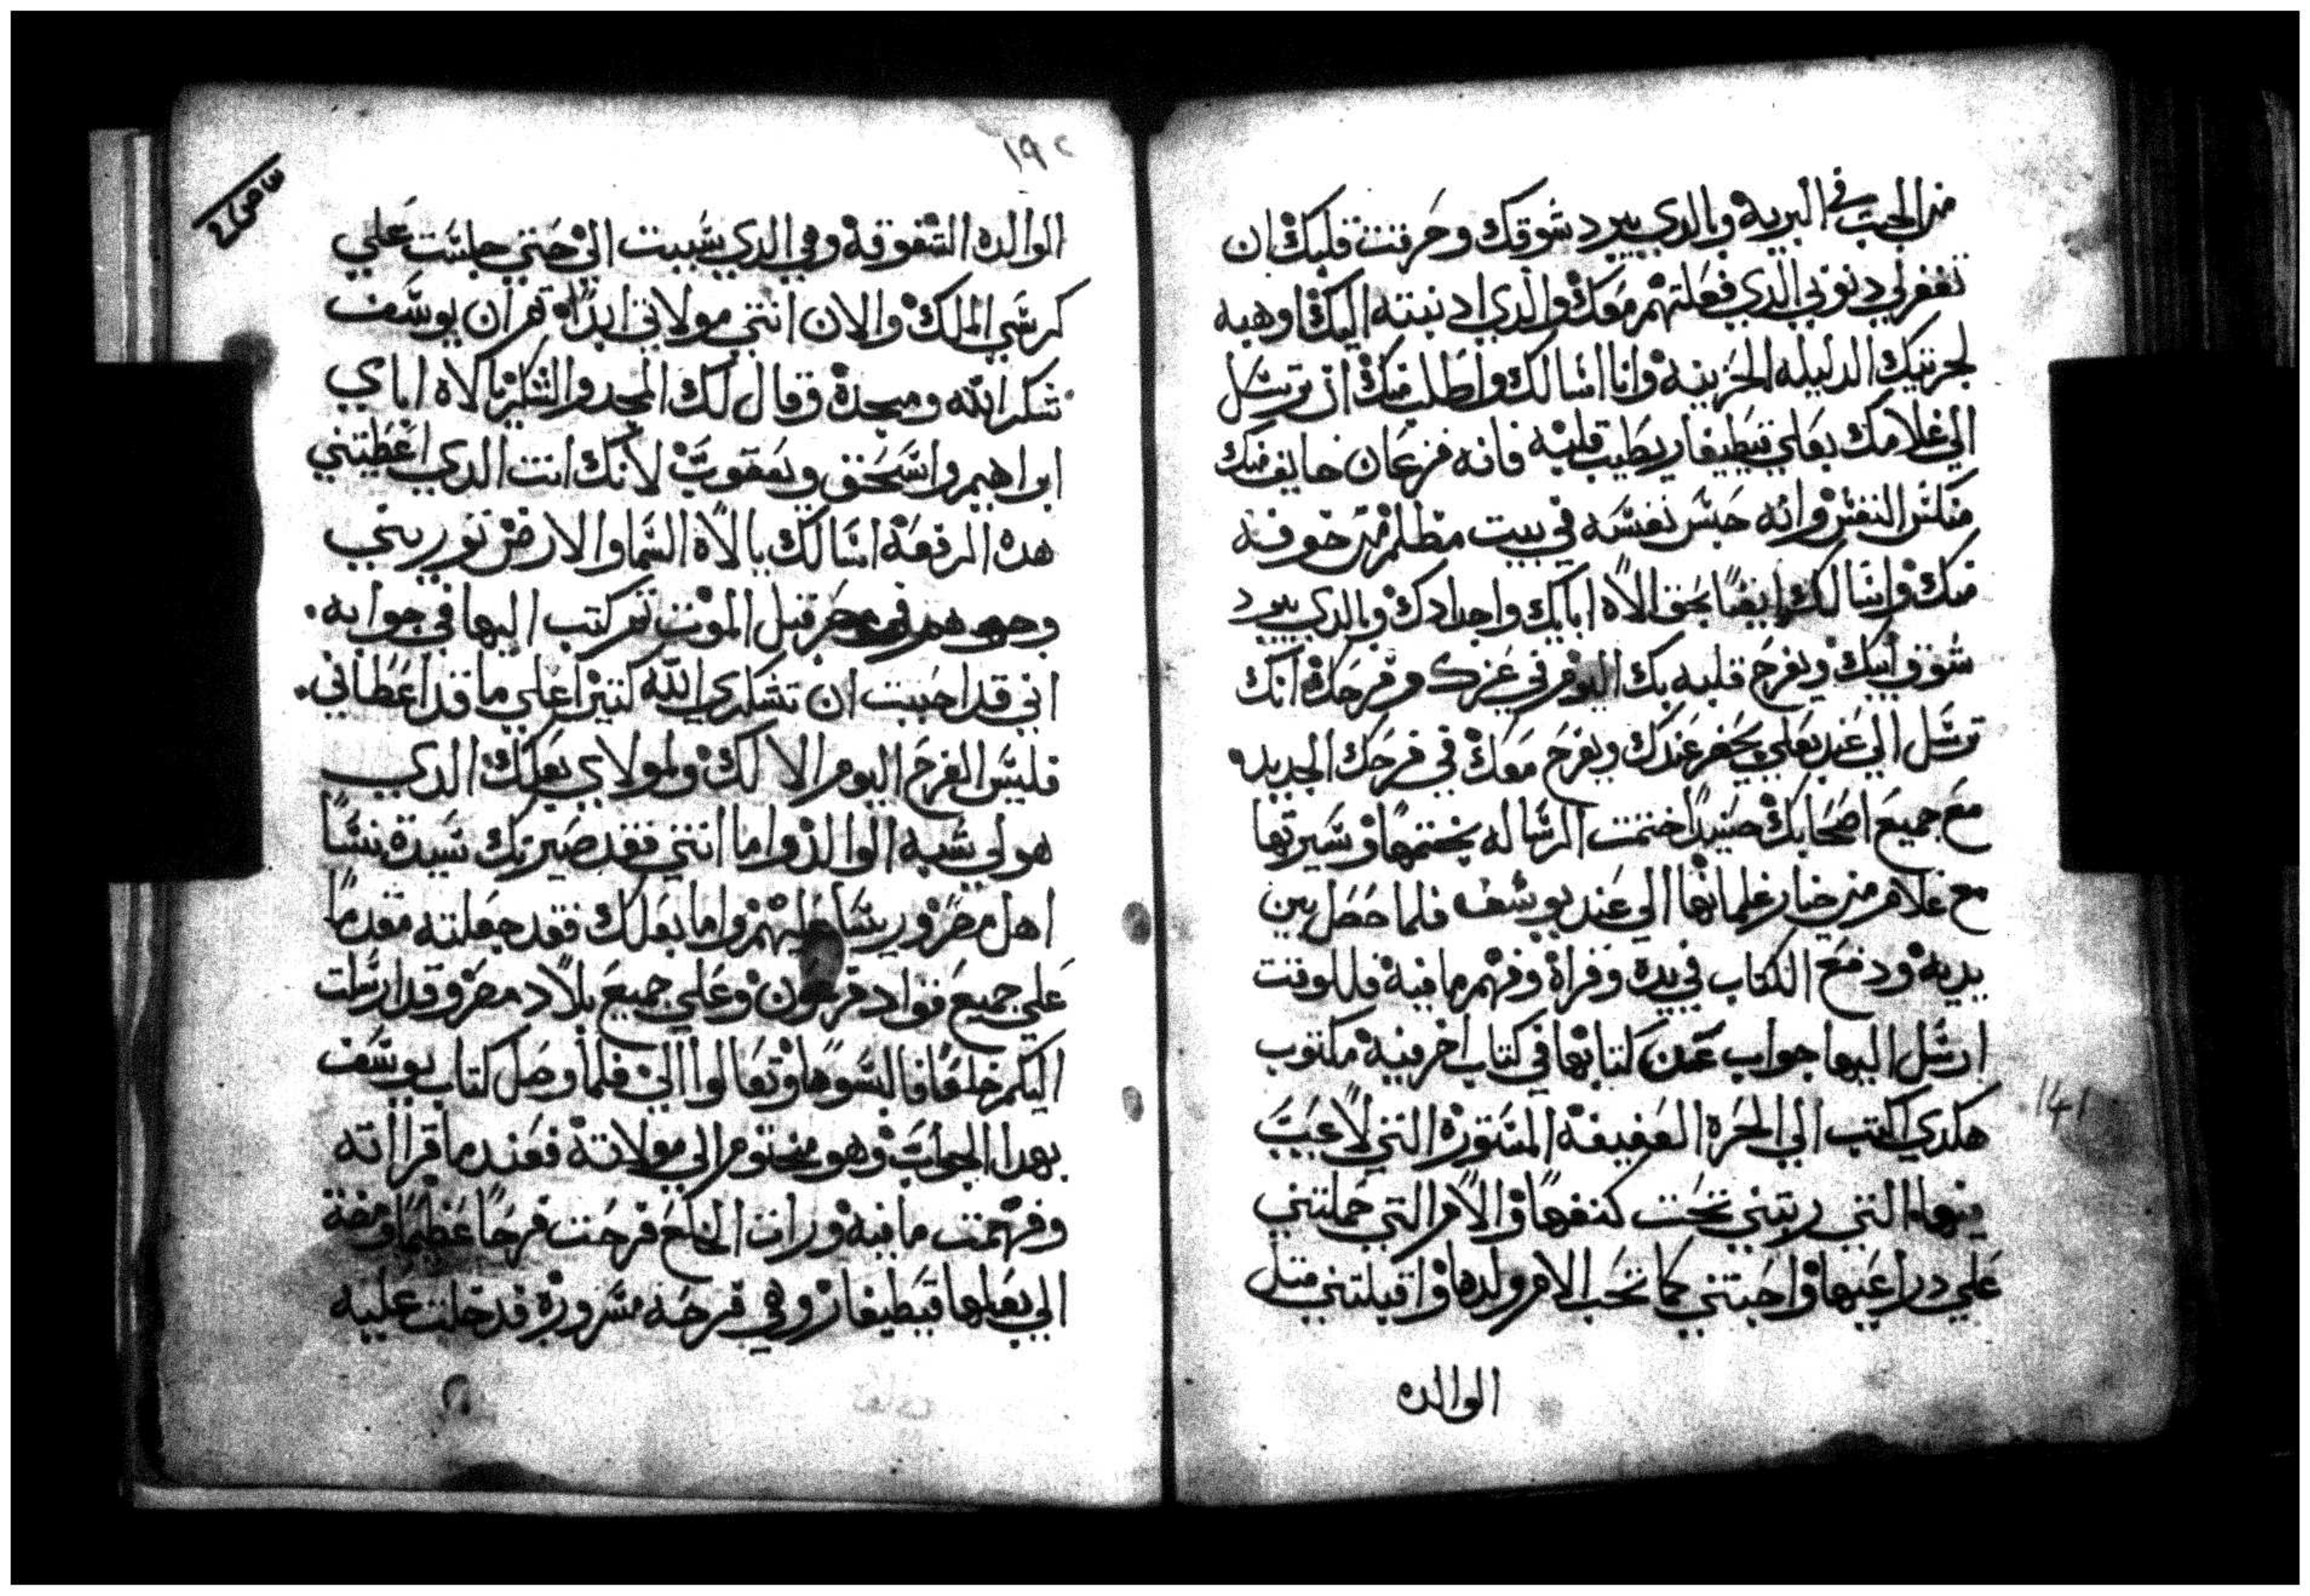 من الجب في البرية وبالدي يبرد شوقك وحرقت قلبك ان
تغفر لي دنوبي الدي فعلتهم معك والدي ادنبته اليك اوهبه
لجرنيك الدليله الحزينة وانا اسالك واطلب منك ان ترسل
الي غلامك بعلي قبطيفار يطيب قلبه فانه فزعان خايف منك
منكس النفس وانه حبس نفسه في بيت مظلم من خوفه
منك واسالك ايضًا بحق الاه ابايك واجدادك وبالدي يبرد
شوق ابيك ويفرح قلبه بك اليوم في عزك وفرحك انك
ترسل الي عند بعلي يحضر عندك ويفرح معك في فرحك الجديد
مع جميع اصحابك حينيدًا ختمت الرساله بختمها وسيرتها
مع غلام من خيار غلمانها الي عند يوسف فلما حصل بين
يديه ودفع الكتاب في يده وقراه وفهم ما فيه فللوقت
ارسل اليها جواب عن كتابها في كتاب اخر فيه مكتوب
هكدي اكتب الي الحرة العفيفة المستورة التي لا عيب
فيها التي ربتني تحت كنفها والام التي حملتني
علي دراعيها واحبتني كما تحب الام ولدها واقبلتني متل
الوالده
١٩٢
الوالده الشفوقة وهي الدي سببت الي حتي جلست علي
كرسي الملك والان انتي مولاتي ابدًا تم ان يوسف
شكر الله ومجده وقال لك المجد والشكر يا الاه اباي
ابراهيم واسحق ويعقوب لانك انت الدي اعطيتني
هده الرفعة اسالك يا الاه السما والارض توريني
قبل الموت تم كتب اليها في جوابه
اني قد احببت ان تشكري الله كتيرًا علي ما قد اعطاني
فليس الفرح اليوم الا لك ولمولاي بعلك الدي
هو لي شبه الوالد واما انتي فقد صيرتك سيدة نسا
اهل مصر وريسا عليهم واما بعلك فقد جعلته مقدمًا
علي جميع قواد فرعون وعلي جميع بلاد مصر وقد ارسلت
اليكم خلعًا فالبسوها وتعالوا الي فلما وصل كتاب يوسف
بهدا الجواب وهو مختوم الي مولاته فعند ما قراته
وفهمت ما فيه ورات الخلع فرحت فرحًا عظيمًا ومضة
الي بعلها قبطيفار وهي فرحه مسرورة فدخلت عليه
141